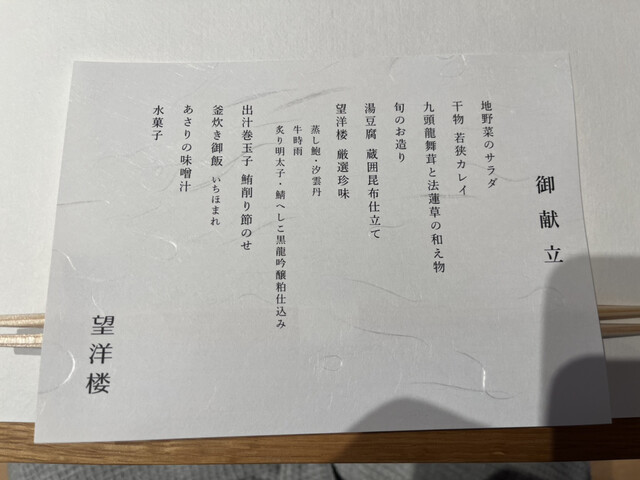 御献立
地野菜のサラダ
干物 若狭カレイ
九頭龍舞茸と法蓮草の和え物
旬のお造り
湯豆腐 蔵囲昆布仕立て
望洋楼 厳選珍味
蒸し鮑・汐雲丹
牛時雨
炙り明太子・鯖へしこ黒龍吟醸粕仕込み
出汁巻玉子 鮪削り節のせ
釜炊き御飯 いちほまれ
あさりの味噌汁
水菓子
望洋楼